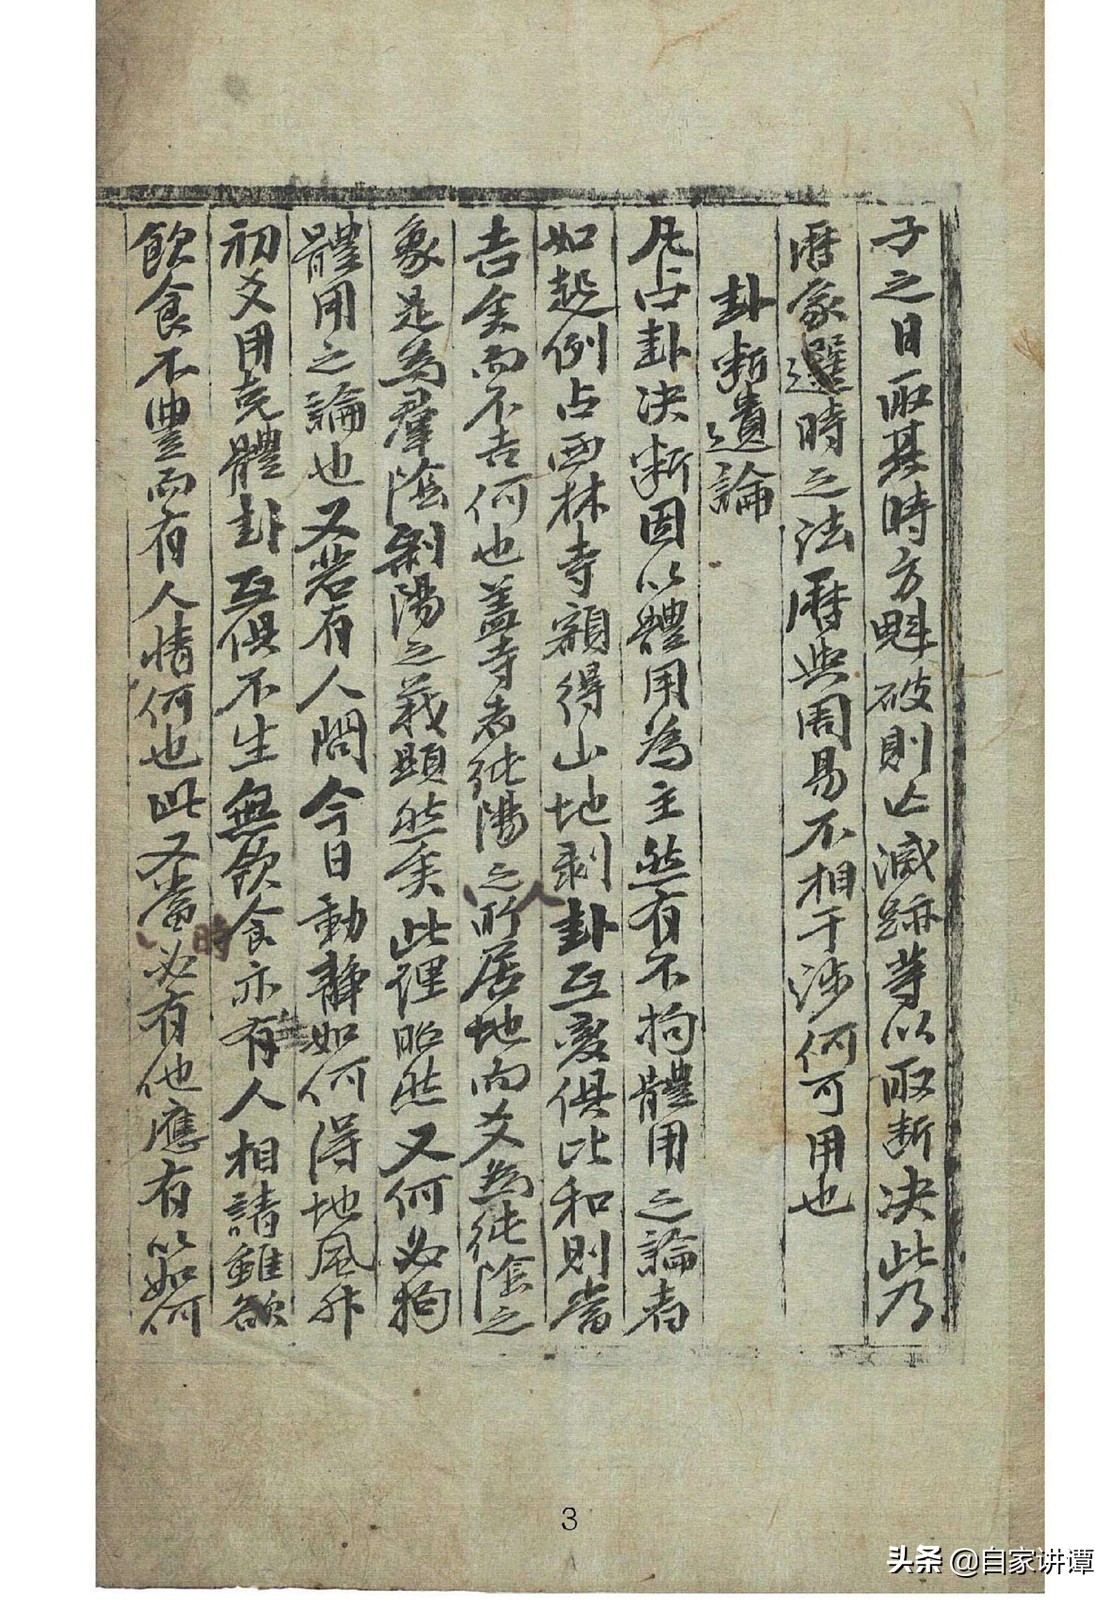 子之日取其時方魁破則止滅跡等以取断决此乃
曆象選時之法曆與周易不相干涉何可用也
卦断遺論
凡占卦决断固以體用為主然有不拘體用之論者
如起例占西林寺額得山地剥卦互變俱比和則當
吉矣而不吉何也盖寺者純陽人之所居地而爻為純陰之
象是為羣陰剥陽之義顕然矣此理昭然又何必拘
體用之論也又若有人問今日動静如何得地風升
初爻用克體卦互俱不生無飲食亦有人相請雖欲
飲食不豊而有人情何也此又當時必有他應有以如何
3
头条 @自家讲谭